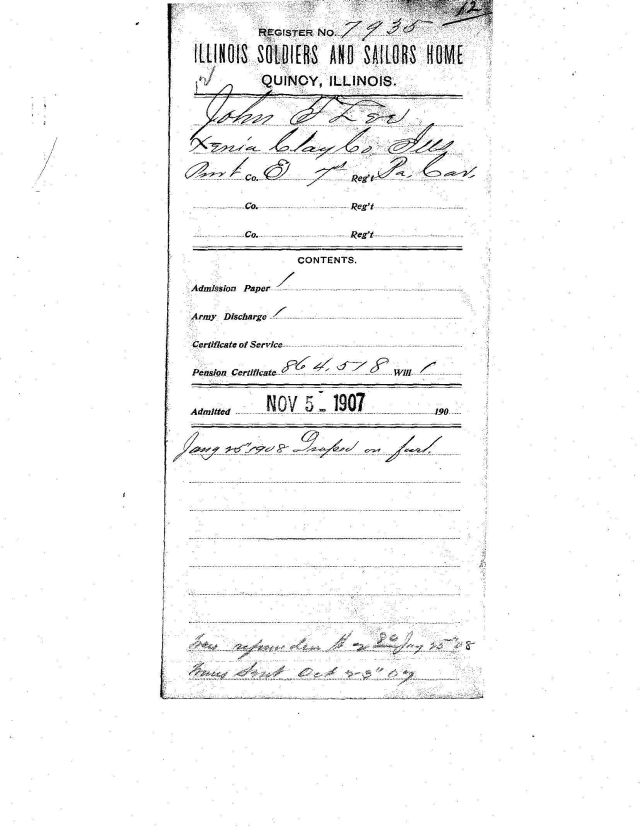 12
REGISTER No. 7935
ILLINOIS SOLDIERS AND SAILORS HOME
QUINCY, ILLINOIS.
John
Xenia Clay Co. Ills
Co. E 7" Reg't Pa. Cav.
Co. Reg't
Co. Reg't
CONTENTS.
Admission Paper 1
Army Discharge 1
Certificate of Service
Pension Certificate 864,518 Will 1
Admitted NOV 5 - 1907 190
Jany 25" 1908 Dropped on furl.
Trans Sent Oct 23" 07